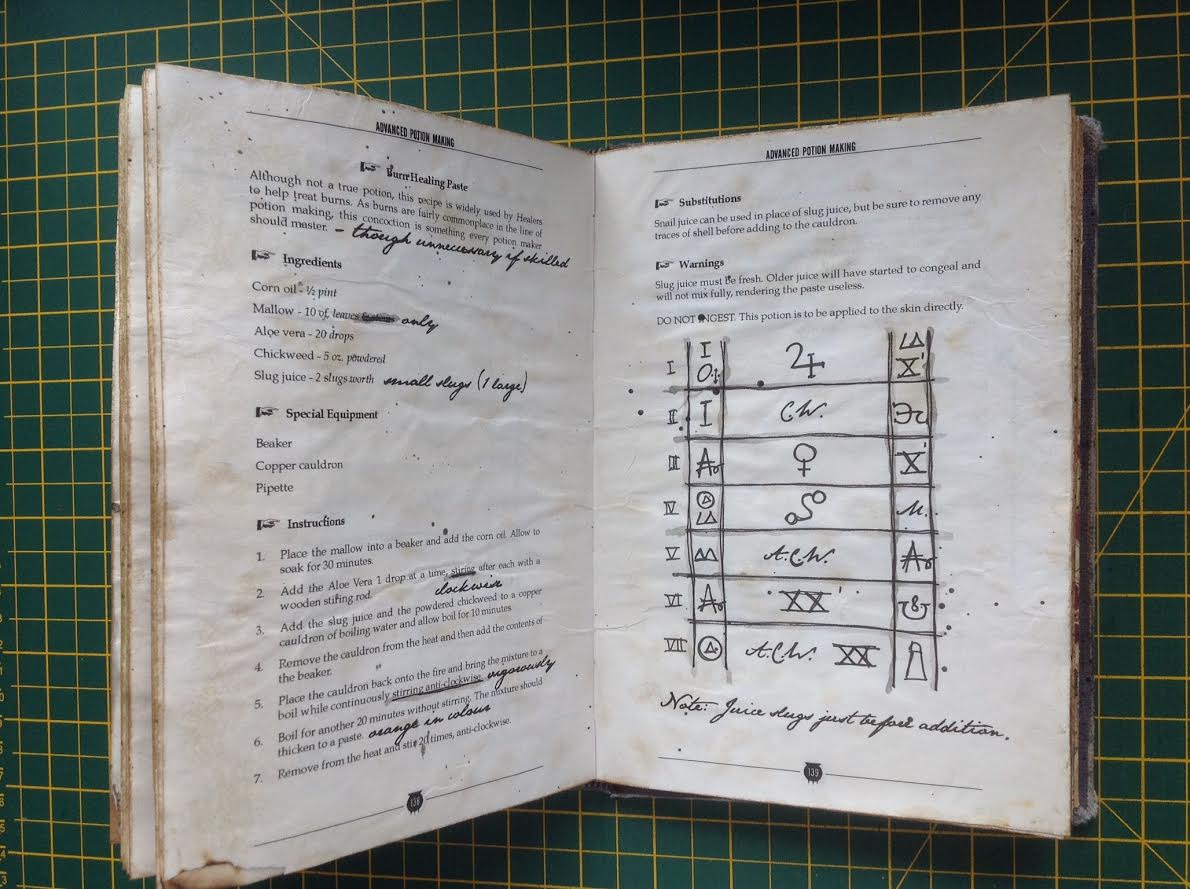 ADVANCED POTION MAKING
Healing Paste
Although not a true potion, this recipe is widely used by Healers
to help treat burns. As burns are fairly commonplace in the line of
potion making, this concoction is something every potion maker
should master. - though unnecessary if skilled
Ingredients
Corn oil - ½ pint
Mallow - 10 leaves only
Aloe vera - 20 drops
Chickweed - 5 oz. powdered
Slug juice - 2 slugs worth small slugs (1 large)
Special Equipment
Beaker
Copper cauldron
Pipette
Instructions
1. Place the mallow into a beaker and add the corn oil. Allow to
soak for 30 minutes.
2. Add the Aloe Vera 1 drop at a time, stiring after each with a
wooden stiring rod. clockwise
3. Add the slug juice and the powdered chickweed to a copper
cauldron of boiling water and allow boil for 10 minutes
4. Remove the cauldron from the heat and then add the contents of
the beaker.
5. Place the cauldron back onto the fire and bring the mixture to a
boil while continuously stirring anti-clockwise. vigorously
6. Boil for another 20 minutes without stirring. The mixture should
thicken to a paste. orange in colour
7. Remove from the heat and stir 20 times, anti-clockwise.
138
ADVANCED POTION MAKING
Substitutions
Snail juice can be used in place of slug juice, but be sure to remove any
traces of shell before adding to the cauldron.
Warnings
Slug juice must be fresh. Older juice will have started to congeal and
will not mix fully, rendering the paste useless.
DO NOT INGEST. This potion is to be applied to the skin directly.
I I ♃ X'
II I C.W.
III ♀ X'
IV M.
V A.C.W.
VI XX'
VII A.C.W. XX
Note: Juice slugs just before addition.
139